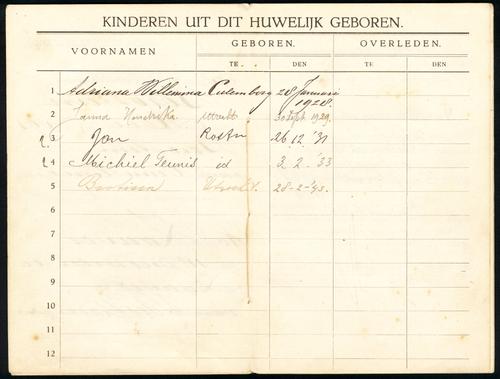 KINDEREN UIT DIT HUWELIJK GEBOREN.
VOORNAMEN GEBOREN. OVERLEDEN.
TE DEN TE DEN
1 Adriana Willemina Culemborg 28 Januari 1928.
2 Janna Hendrika Utrecht 30 Sept 1929.
3 Jan 26 12 '31
4 Michiel Teunis id 3 2 - '33
5 Utrecht. 28-2-'43.
6
7
8
9
10
11
12